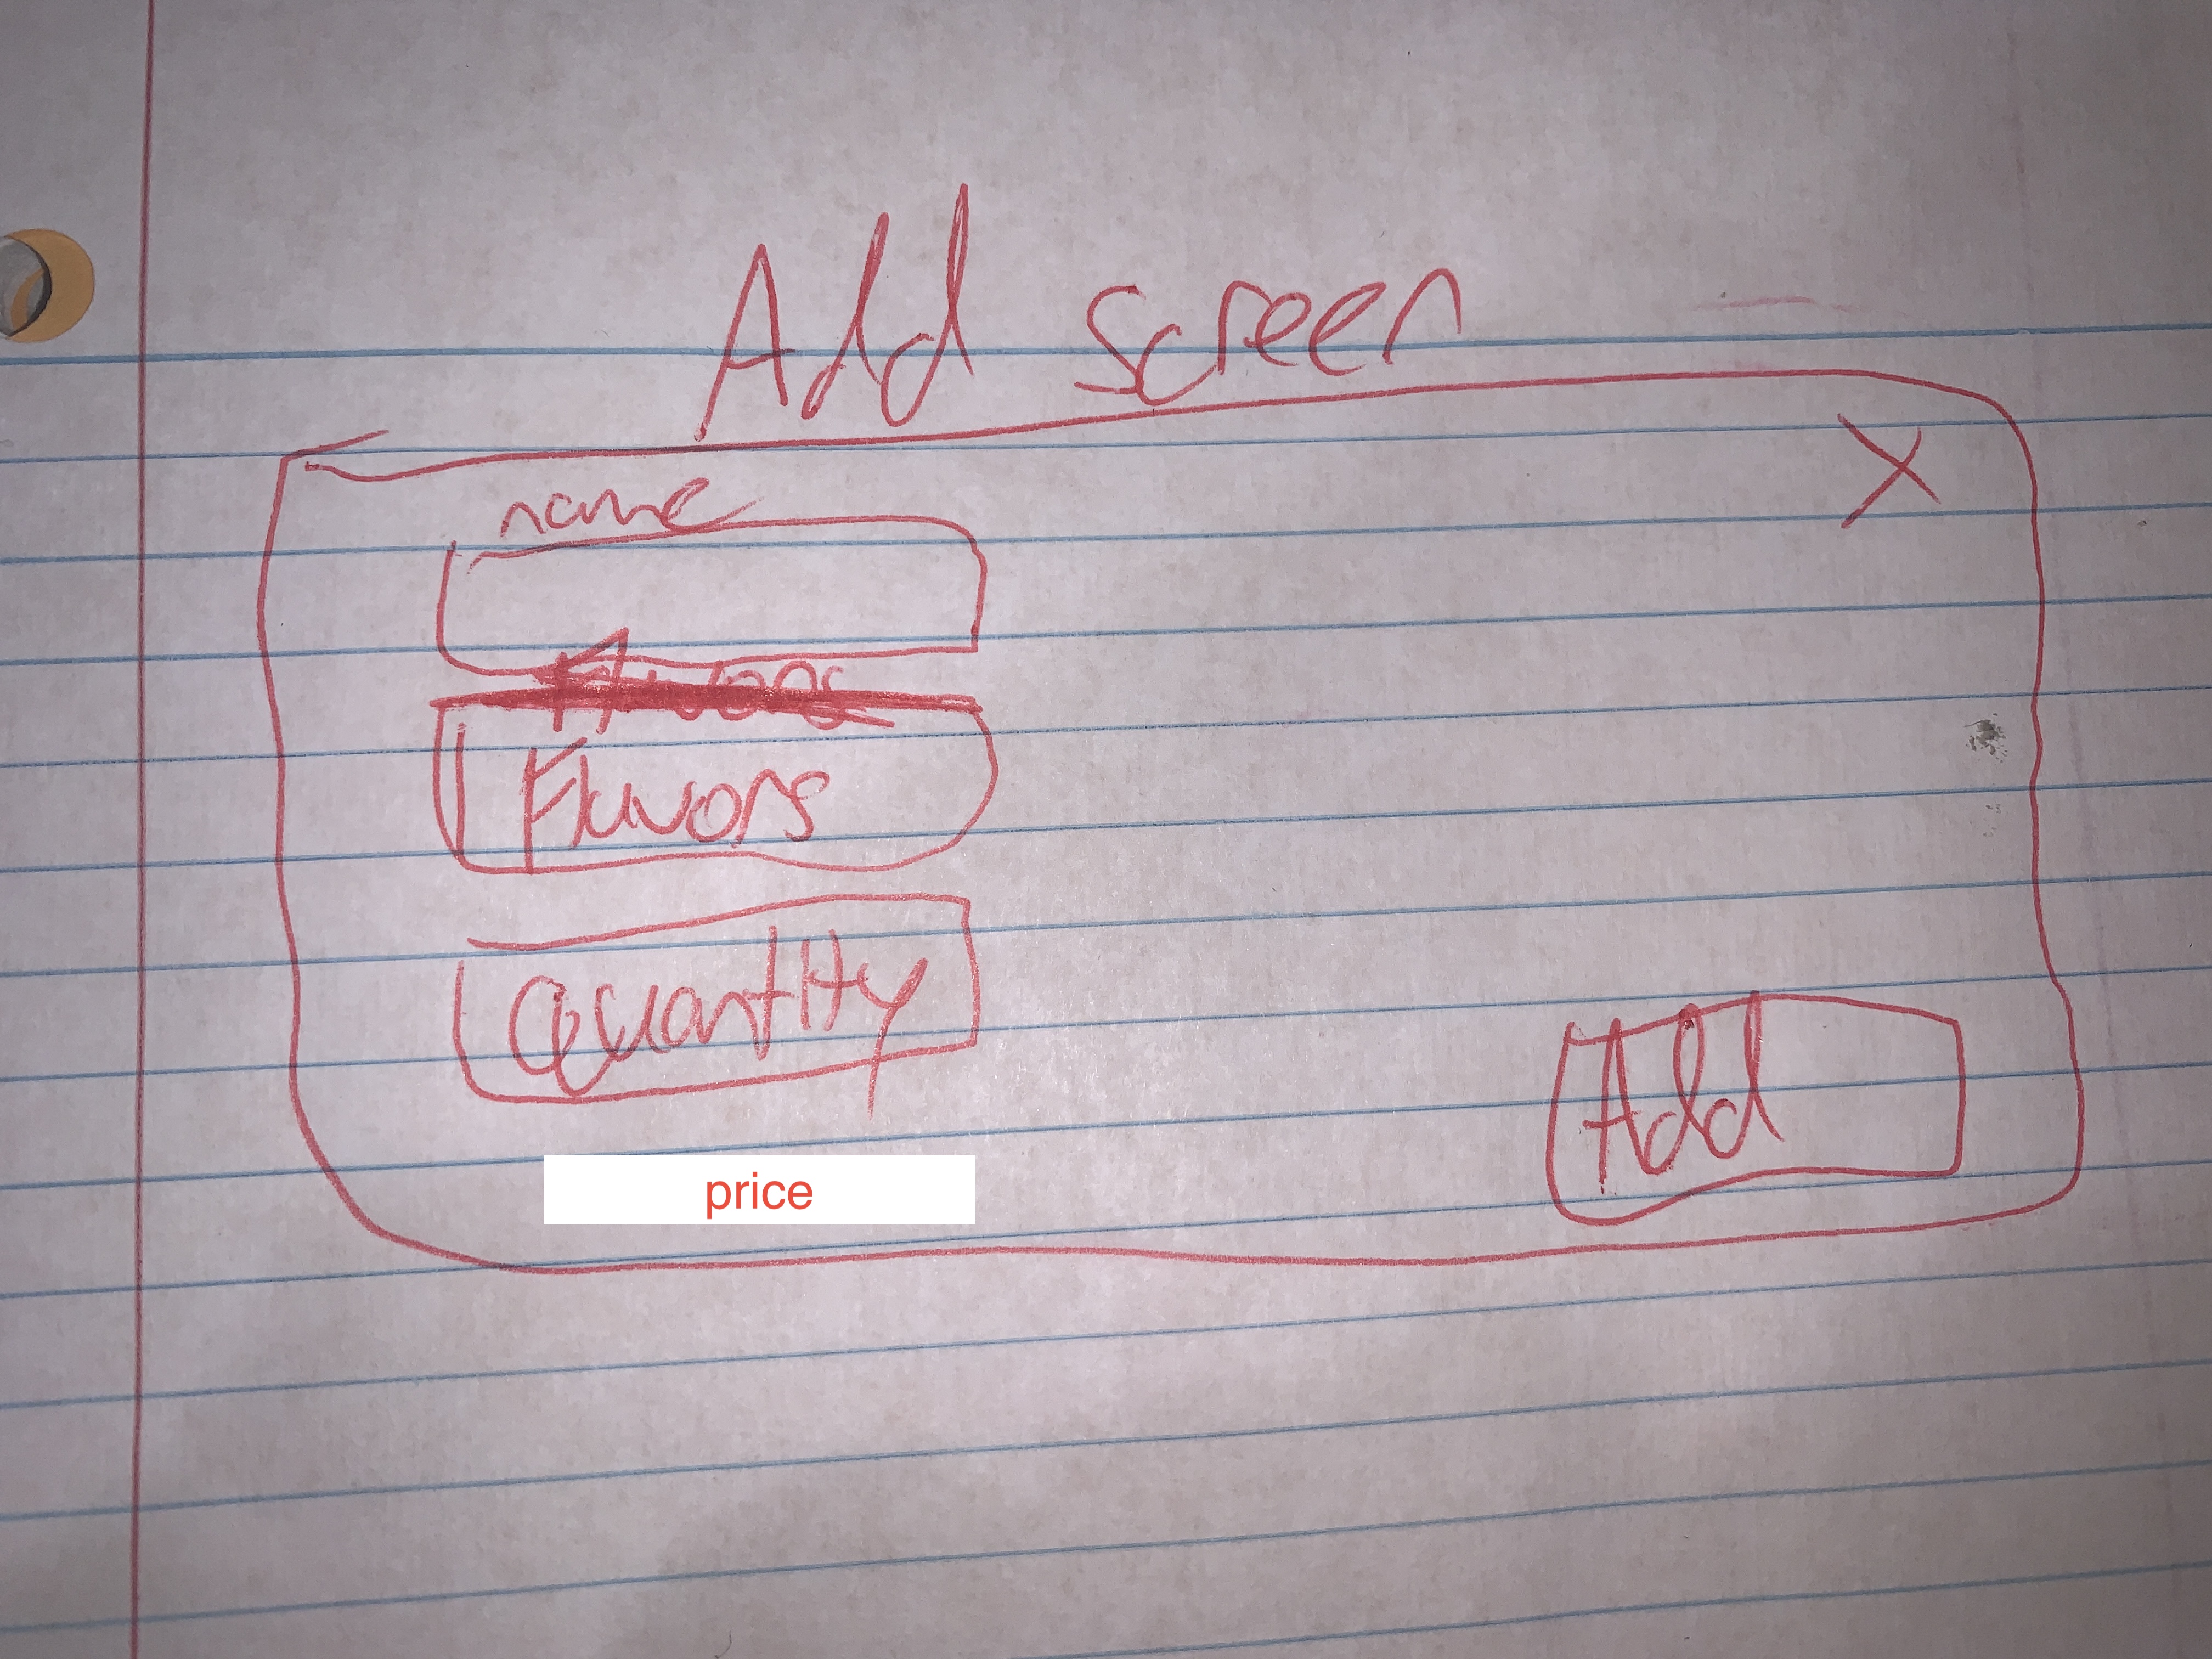 Add screen
X
name
Flavors
Quantity
Add
price